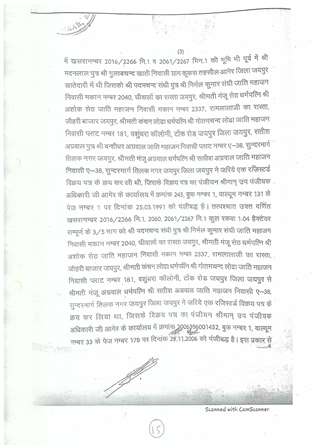 (3)
में खसरानम्बर 2016/2266 मि.1 व 2061/2267 मिन.1 की भूमि भी पूर्व में श्री
मदनलाल पुत्र श्री गुलाबचन्द खाती निवासी ग्राम कूकस तहसील आमेर जिला जयपुर
खातेदारी में थी जिसको श्री पदमचन्द संघी पुत्र श्री निर्मल कुमार संघी जाति महाजन
निवासी मकान नम्बर 2040, घीवालों का रास्ता जयपुर, श्रीमती मंजू सेठ धर्मपत्नि श्री
अशोक सेठ जाति महाजन निवासी मकान नम्बर 2337, रामलालाजी का रास्ता,
जौहरी बाजार जयपुर, श्रीमती कंचन लोढा धर्मपत्नि श्री गोतमचन्द लोढा जाति महाजन
निवासी प्लाट नम्बर 181, वसुंधरा कॉलोनी, टोंक रोड जयपुर जिला जयपुर, सतीश
अग्रवाल पुत्र श्री बन्शीधर अग्रवाल जाति महाजन निवासी प्लाट नम्बर ए–38, सुन्दरमार्ग
तिलक नगर जयपुर, श्रीमती मंजू अग्रवाल धर्मपत्नि श्री सतीश अग्रवाल जाति महाजन
निवासी ए–38, सुन्दरमार्ग तिलक नगर जयपुर जिला जयपुर ने जरिये एक रजिस्टर्ड
विक्रय पत्र के क्रय कर ली थी, जिसके विक्रय पत्र का पंजीयन श्रीमान् उप पंजीयक
अधिकारी जी आमेर के कार्यालय में क्रमांक 243, बुक नम्बर 1, वाल्यूम नम्बर 131 के
पेज नम्बर 1 पर दिनांक 25.03.1991 को पंजीबद्ध है। तत्पश्चात उक्त वर्णित
खसरानम्बर 2016/2266 मि.1, 2060, 2061/2267 मि.1 कुल रकबा 1.04 हैक्टेयर
सम्पूर्ण के 3/5 भाग को श्री पदमचन्द संघी पुत्र श्री निर्मल कुमार संघी जाति महाजन
निवासी मकान नम्बर 2040, घीवालों का रास्ता जयपुर, श्रीमती मंजू सेठ धर्मपत्नि श्री
अशोक सेठ जाति महाजन निवासी मकान नम्बर 2337, रामलालाजी का रास्ता,
जौहरी बाजार जयपुर, श्रीमती कंचन लोढा धर्मपत्नि श्री गोतमचन्द लोढा जाति महाजन
निवासी प्लाट नम्बर 181, वसुंधरा कॉलोनी, टोंक रोड जयपुर जिला जयपुर से
श्रीमती मंजू अग्रवाल धर्मपत्नि श्री सतीश अग्रवाल जाति महाजन निवासी ए–38,
सुन्दरमार्ग तिलक नगर जयपुर जिला जयपुर ने जरिये एक रजिस्टर्ड विक्रय पत्र के
क्रय कर लिया था, जिसके विक्रय पत्र का पंजीयन श्रीमान् उप पंजीयक
अधिकारी जी आमेर के कार्यालय में क्रमांक 2006396001432, बुक नम्बर 1, वाल्यूम
नम्बर 33 के पेज नम्बर 178 पर दिनांक 28.11.2006 को पंजीबद्ध है। इस प्रकार से
Scanned with CamScanner
15